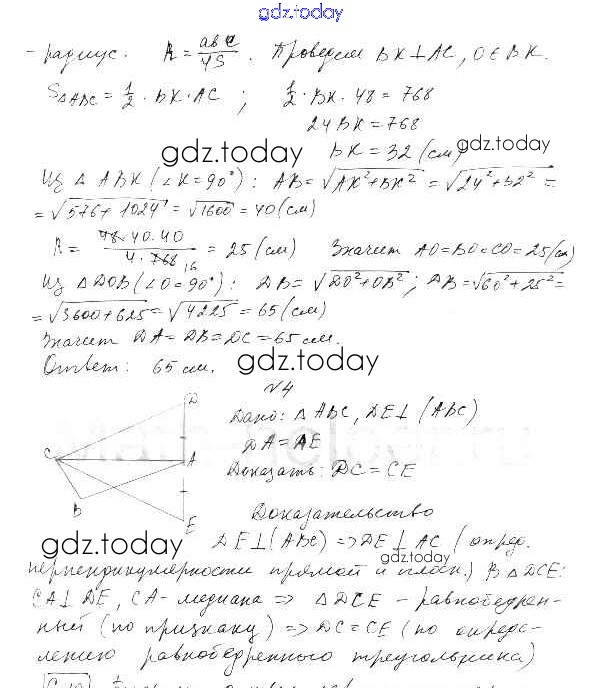 gdz.today
- радиус. R = abc/4S . Проведем BK⊥AC, O∈BK.
S△ABC = 1/2 · BK · AC ; 1/2 · BK · 48 = 768
24BK = 768
gdz.today BK = 32 (см) gdz.today
Из △ABK (∠K=90°): AB = √AK²+BK² = √24²+32² =
= √576+1024 = √1600 = 40 (см)
R = 48·40·40/4·768 = 25 (см) Значит AO=BO=CO=25 (см)
16
Из △DOB (∠O=90°): DB = √DO²+OB² ; DB = √60²+25² =
= √3600+625 = √4225 = 65 (см)
Значит DA = DB = DC = 65 см.
Ответ: 65 см. gdz.today
№4
D
Дано: △ABC, DE⊥(ABC)
DA = AE
C A Доказать: DC = CE
B
E
Доказательство
gdz.today DE⊥(ABC) => DE⊥AC (опред.
gdz.today
перпендикулярности прямой и плоск.) В △DCE:
CA⊥DE, CA - медиана => △DCE - равнобедрен-
ный (по признаку) => DC = CE (по опреде-
лению равнобедренного треугольника)